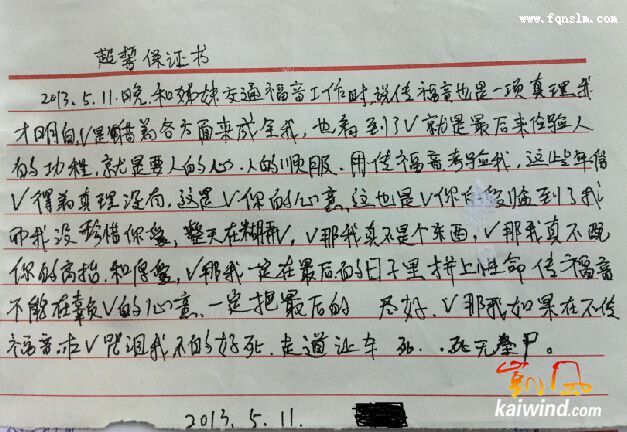 www.fqnslm.com
起誓保证书
2013.5.11.晚.和姊妹交通福音工作时,说传福音也是一项真理,我
才明白,V是借着各方面来成全我,也看到了V就是最后来经验人
的功课,就是要人的心.人的顺服.用传福音考验我,这些年信
V得着真理没有,这是V你的心意,这也是V你 临到了我
而我没珍惜你爱,整天在糊弄V,V那我真不是个东西,V那我真不配
你的高抬.和厚爱,V那我一定在最后的日子里拼上性命传福音
不能在辜负V的心意.一定把最后的 尽好.V那我如果在不传
福音.求V咒诅我不的好死.走道让车 死..死无全尸。
2013.5.11.
凯风
kaiwind.com